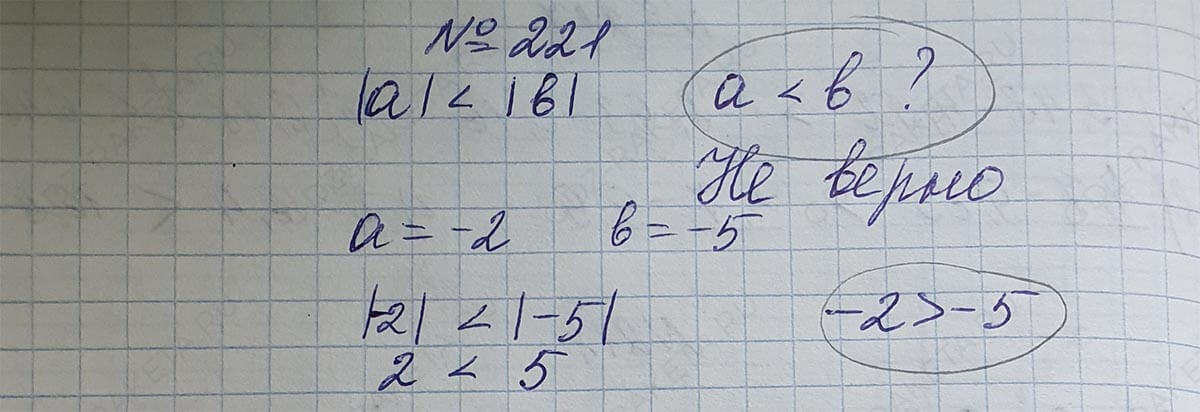 № 221
|a| < |в| a < в ?
Не верно
a = -2 в = -5
|-2| < |-5| -2 > -5
2 < 5